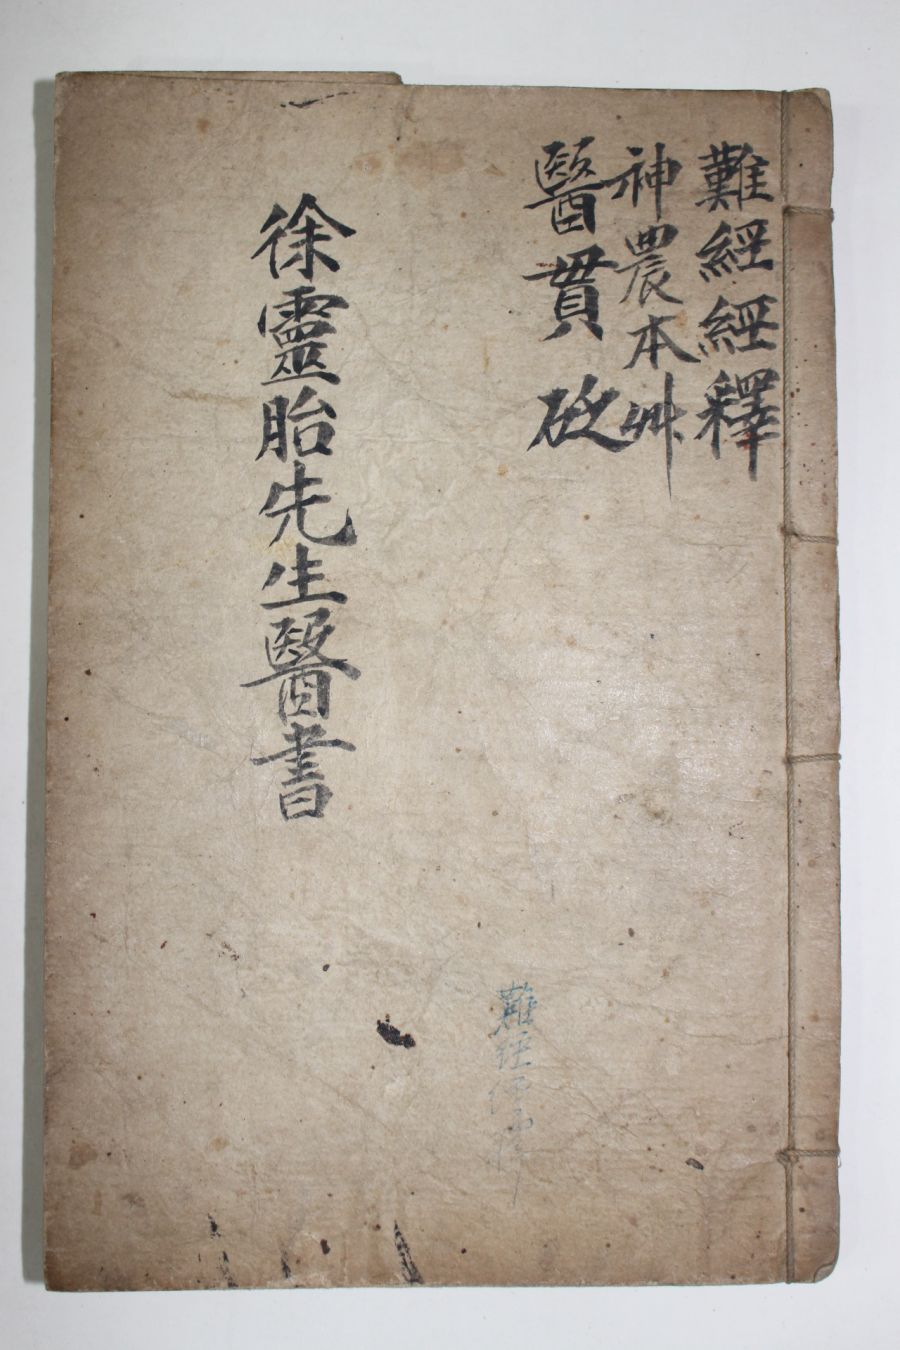 難經經釋
神農本艸
醫貫砭
徐靈胎先生醫書
難經經釋